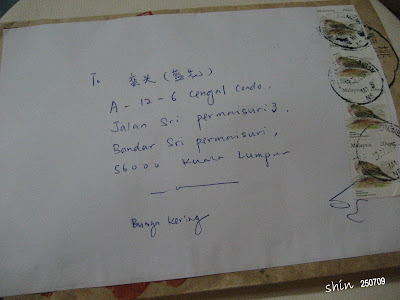 To
A - 12 - 6 Cengal Condo,
Jalan Sri permaisuri 3,
Bandar Sri permaisuri,
56000 Kuala Lumpur
Bunga Kering
Malaysia
Malaysia
shin 250709